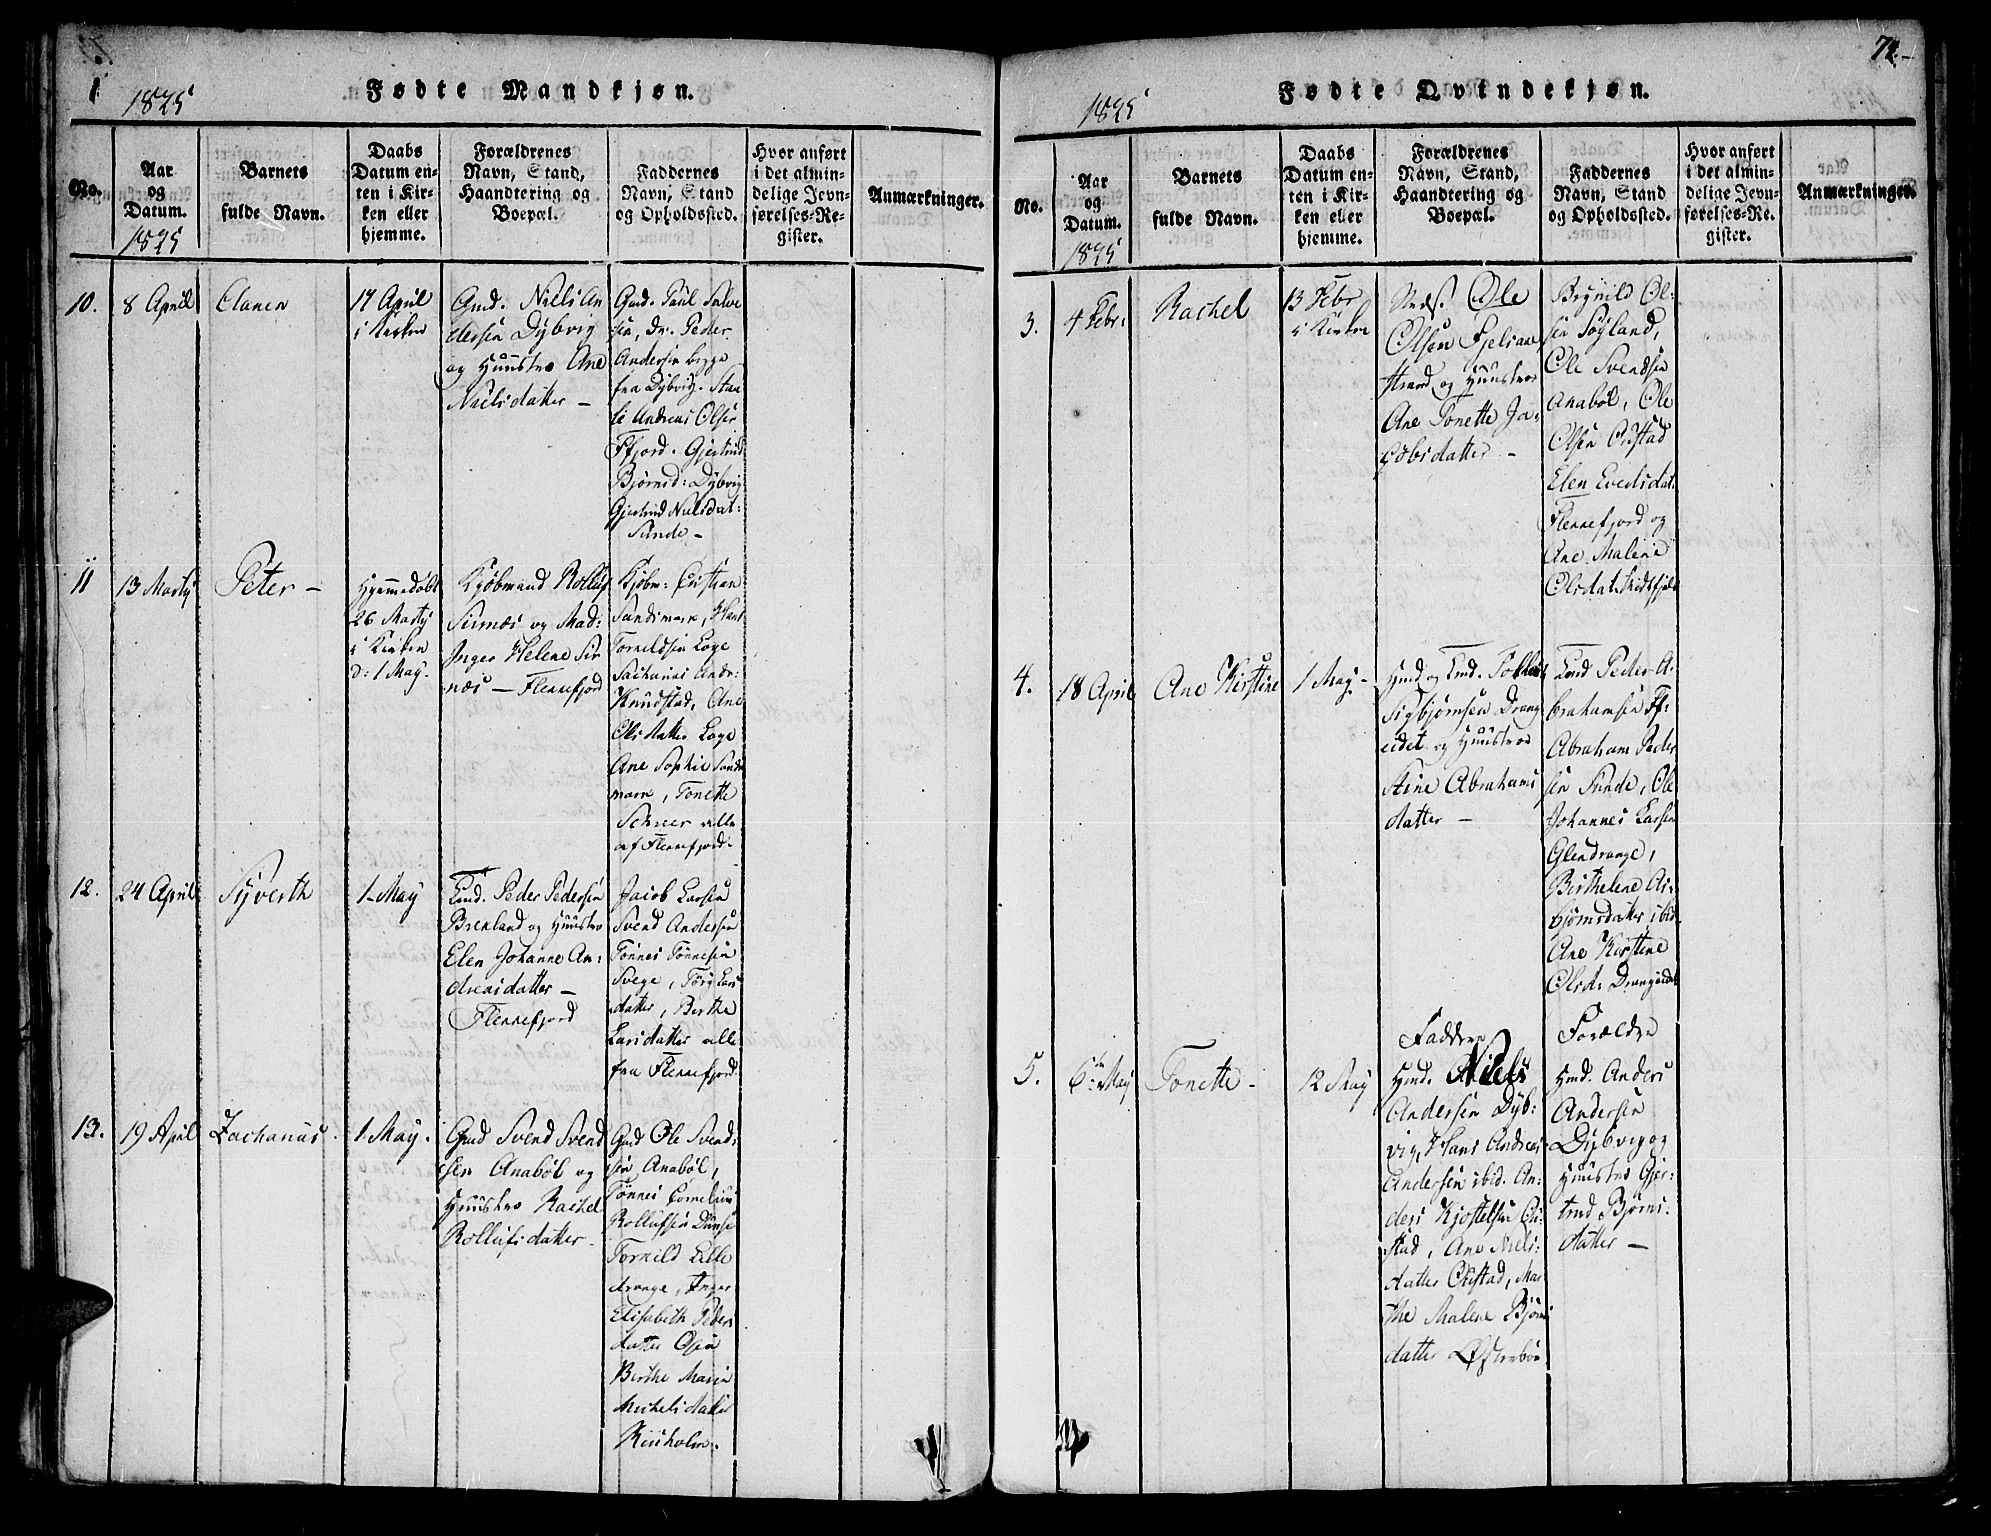 1825
Fødte Mandkjøn.
No.
Aar
og
Datum.
1825
Barnets
fulde Navn.
Daabs
Datum en-
ten i Kir-
ken eller
hjemme.
Forældrenes
Navn, Stand,
Haandtering og
Boepæl.
Faddernes
Navn, Stand
og Opholdssted.
Hvor anført
i det almin-
delige Jevn-
førelses-Re-
gister.
Anmærkninger.
10.
8 April
Clanen
17 April
i Kirken
Gmd. Niels An
dersen Dybvig
og Huustro Ane
Nielsdatter -
Gmd. Paul Salve
sen, Dr. Peder
Andersen begge
fra Dybvig.
Andreas Olsen
Ffjord. Gjertrud
Bjørnsd: Dybvig
Gjertrud Nielsdat:
Sunde -
11
13 Martj
Peter -
Hjemmedøbt
26 Martj
i Kirken
d: 1 May.
Kjøbmand Rolluf
Sirnæs og Mad:
Inger Helene Sir
næs - Flekkefjord
Kjøbm: Christian
Sandsmark, Hans
Tornildsen Loge
Zacharias Andr:
Knudstad, Ane
Olsdatter Loge
Ane Sophie Sands
mark, Tonette
alle
af Flekkefjord.
12.
24 April
Syverth
1 May
Lmd. Peder Pedersen
Brekland og Huustro
Elen Johanne An:
dreasdatter -
Flekkefjord
Jacob Larsen
Svend Andersen
Tønnes Tønnesen
Svege, Lars
datter, Berthe
Larsdatter alle
fra Flekkefjord.
13.
19 April
Zacharias.
1 May.
Gmd Svend Svend
sen Anabøl og
Huustro Rachel
Rollufsdatter -
Gmd Ole Svend:
sen Anabøl,
Tønnes Cornelius
Rollufsen
Tornild Lille
drange, Inger
Elisabeth Peders
datter Osen
Berthe Maria
Michelsdatter
72.-
1825
Fødte Qvindekjøn.
No.
Aar
og
Datum.
1825
Barnets
fulde Navn.
Daabs
Datum en-
ten i Kir-
ken eller
hjemme.
Forældrenes
Navn, Stand,
Haandtering og
Boepæl.
Faddernes
Navn, Stand
og Opholdssted.
Hvor anført
i det almin-
delige Jevn-
førelses-Re-
gister.
Anmærkninger.
3.
4 Febr:
Rachel
13 Febr
i Kirken
Ole
Olsen Fjelsaae
strand og Huustroe
Ane Tonette Ja:
cobsdatter -
Brynild Ol:
sen Søyland,
Ole Svendsen
Anabøl, Ole
Olsen Oustad
Elen Evertsdat:
Flekkefjord og
Ane Malene
Olsdat.
4.
18 April
Ane Kirstine
1 May -
Hmd og Lmd.
Sigbjørnsen Drang
eidet og Huustroe
Stine Abrahams
datter -
Lmd Peder A:
brahamsen Ff:
Abraham Peder
sen Sunde, Ole
Johannes Larsen
Glendrange,
Berthelene As:
bjørnsdatter ibid.
Ane Kirstine
Olsd: Drangeidet
Faddere
Forældre
5.
6te May
Tonette -
12 May
Hmd. Niels
Andersen Dyb:
vig, Hans Andreas
Andersen ibid. An:
ders Kjostelsen Ou:
stad, Ane Niels:
datter Oustad, Mar
the Malene Bjørns
datter Østrebøe
Hmd. Anders
Andersen
Dybvig og
Huustro Gjer:
trud Bjørns.
datter -